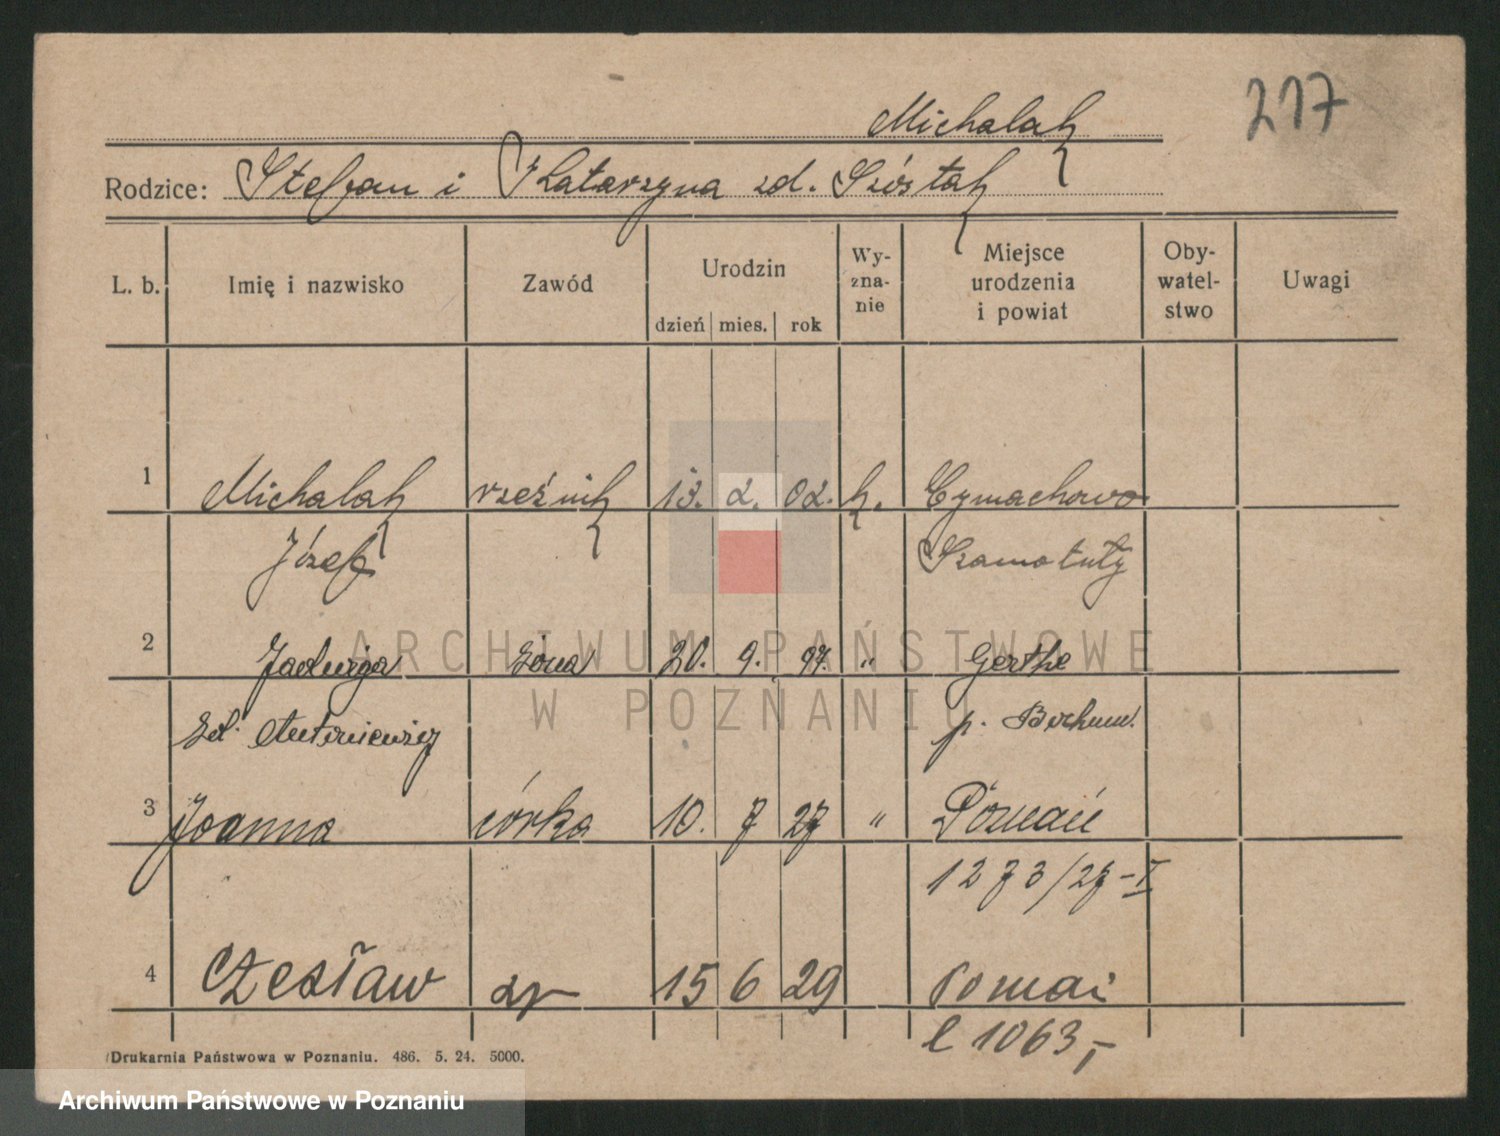 217
Michalak
Rodzice: Stefan i Katarzyna zd. Szóstak
L. b. Imię i nazwisko Zawód Urodzin dzień mies. rok Wy-zna-nie Miejsce urodzenia i powiat Oby-watel-stwo Uwagi
1 Michalak rzeźnik 13. 2. 02. k. Cymachowo
Józef Szamotuły
2 Jadwiga żona 20. 9. 97. " Gerthe
zd. Antoniewicz p. Bochum.
3 Joanna córka 10. 7 27 " Poznań
1273/27-I
4 Czesław 15 6 29
l 1063,-
Drukarnia Państwowa w Poznaniu. 486. 5. 24. 5000.
ARCHIWUM PAŃSTWOWE
W POZNANIU
Archiwum Państwowe w Poznaniu